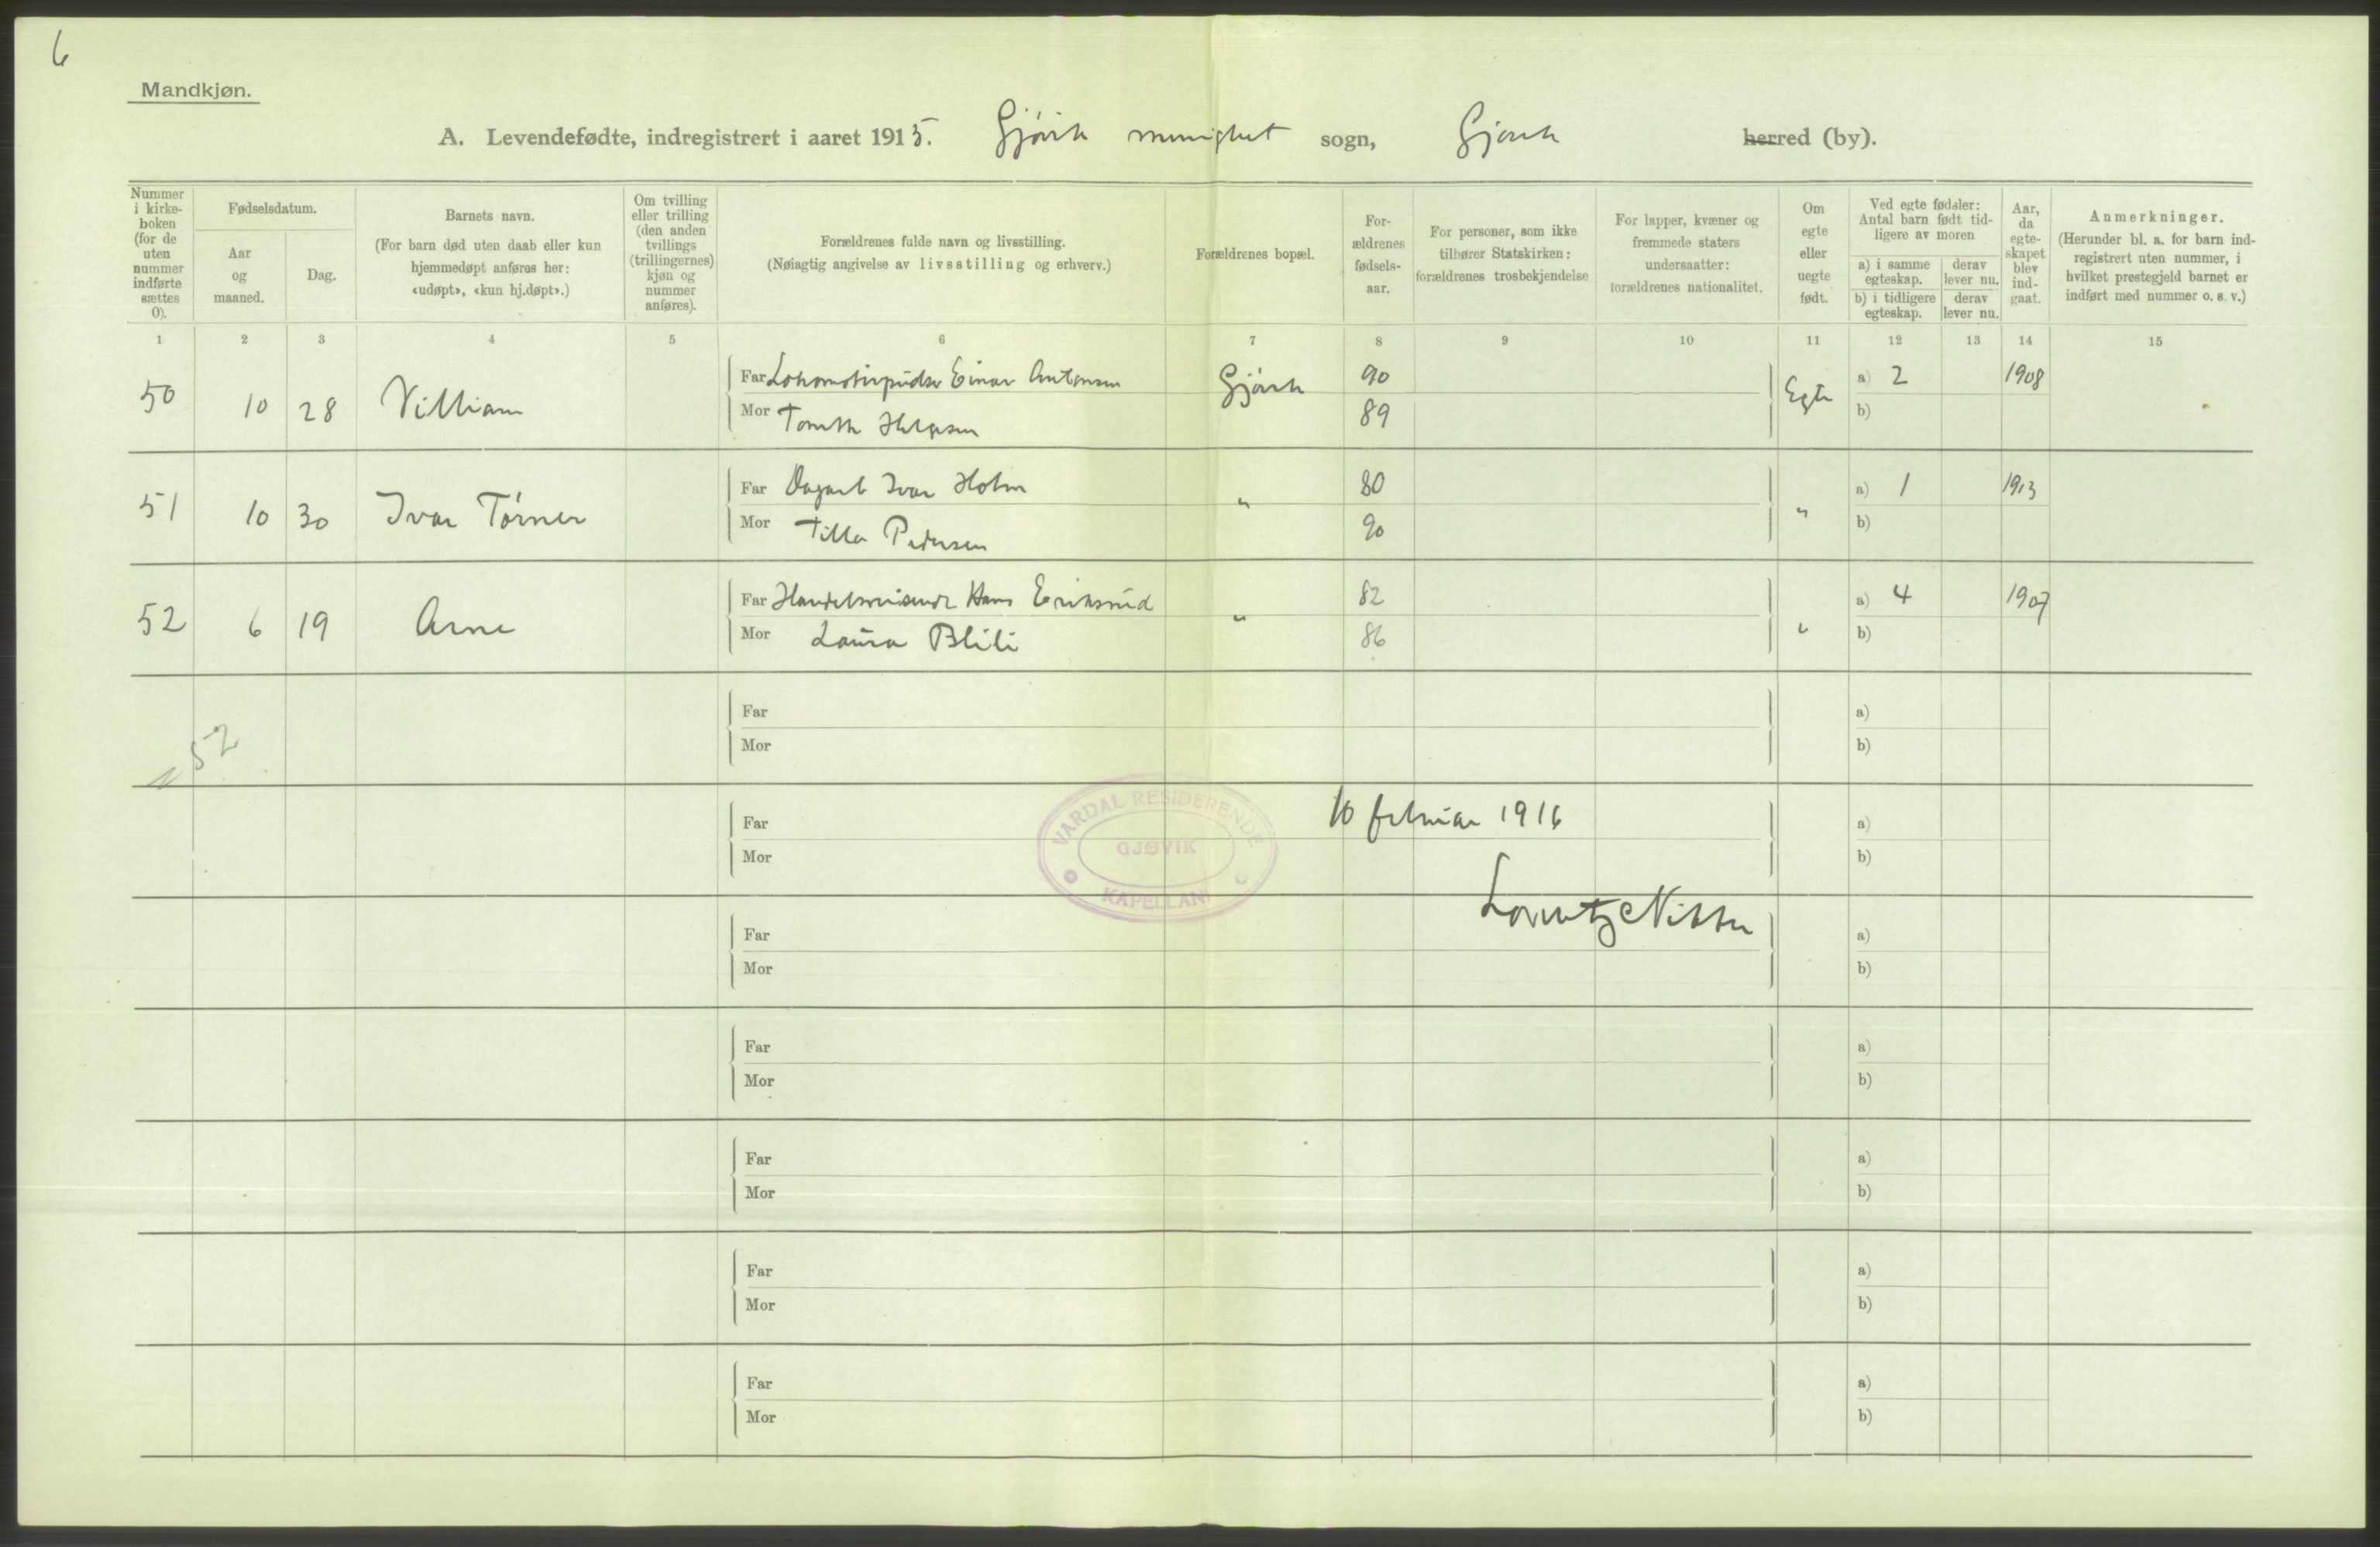 6
Mandkjøn.
A. Levendefødte, indregistrert i aaret 1915. Gjøvik menighet sogn, Gjøvik herred (by).
Nummer i kirke-boken (for de uten nummer indførte sættes 0).
Fødselsdatum.
Aar og maaned.
Dag.
Barnets navn.
(For barn død uten daab eller kun hjemmedøpt anføres her: «udøpt», «kun hj.døpt».)
Om tvilling eller trilling (den anden tvillings (trillingernes) kjøn og nummer anføres).
Forældrenes fulde navn og livsstilling.
(Nøiagtig angivelse av livsstilling og erhverv.)
Forældrenes bopæl.
For-ældrenes fødsels-aar.
For personer, som ikke tilhører Statskirken: forældrenes trosbekjendelse
For lapper, kvæner og fremmede staters undersaatter: forældrenes nationalitet.
Om egte eller uegte født.
Ved egte fødsler: Antal barn født tid-ligere av moren
a) i samme egteskap. derav lever nu.
b) i tidligere egteskap. derav lever nu.
Aar, da egte-skapet blev ind-gaat.
Anmerkninger.
(Herunder bl. a. for barn ind-registrert uten nummer, i hvilket prestegjeld barnet er indført med nummer o. s. v.)
1 2 3 4 5 6 7 8 9 10 11 12 13 14 15
50 10 28 William Far Lokomotivpudser Einar Antonsen Gjøvik 90 Egte a) 2 1908
Mor Helgesen 89 b)
51 10 30 Ivar Tørner Far Ivar Holm " 80 " a) 1 1913
Mor Tilla Pedersen 90 b)
52 6 19 Arne Far Handelsreisende Hans Eriksrud " 82 " a) 4 1907
Mor Laura Blili 86 b)
Far a)
52
Mor b)
VARDAL RESIDERENDE
GJØVIK
KAPELLANI
Far 10 februar 1916 a)
Mor b)
Lorentz Nissen
Far a)
Mor b)
Far a)
Mor b)
Far a)
Mor b)
Far a)
Mor b)
Far a)
Mor b)